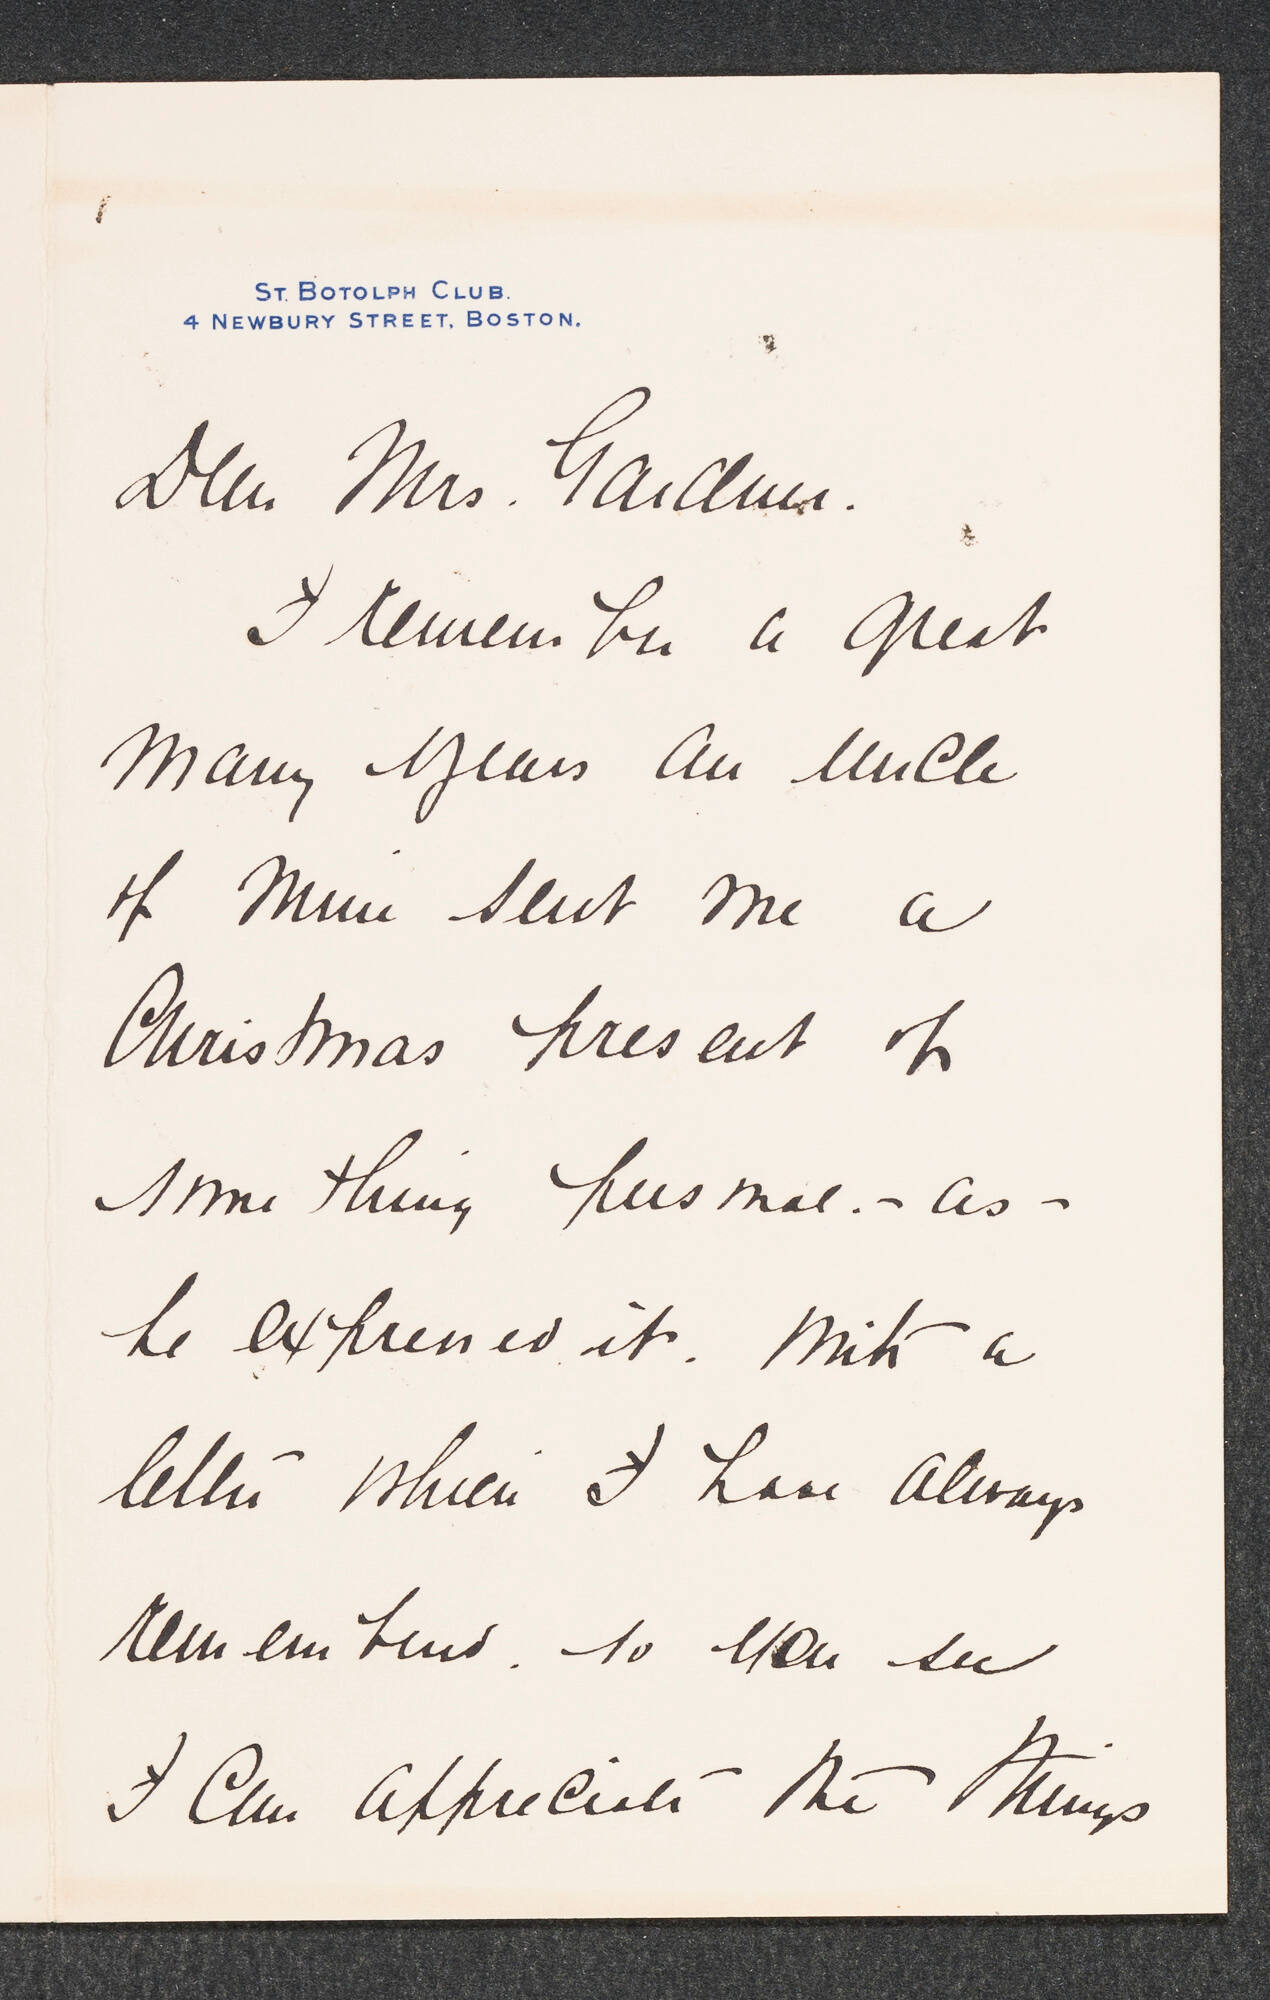 ST. BOTOLPH CLUB.
4 NEWBURY STREET, BOSTON.
Dear Mrs. Gardner.
I remember a great
many years an uncle
of mine sent me a
Christmas present of
something personal. - as -
he expressed it. with a
letter which I have always
remembered. so you see
I can appreciate the things